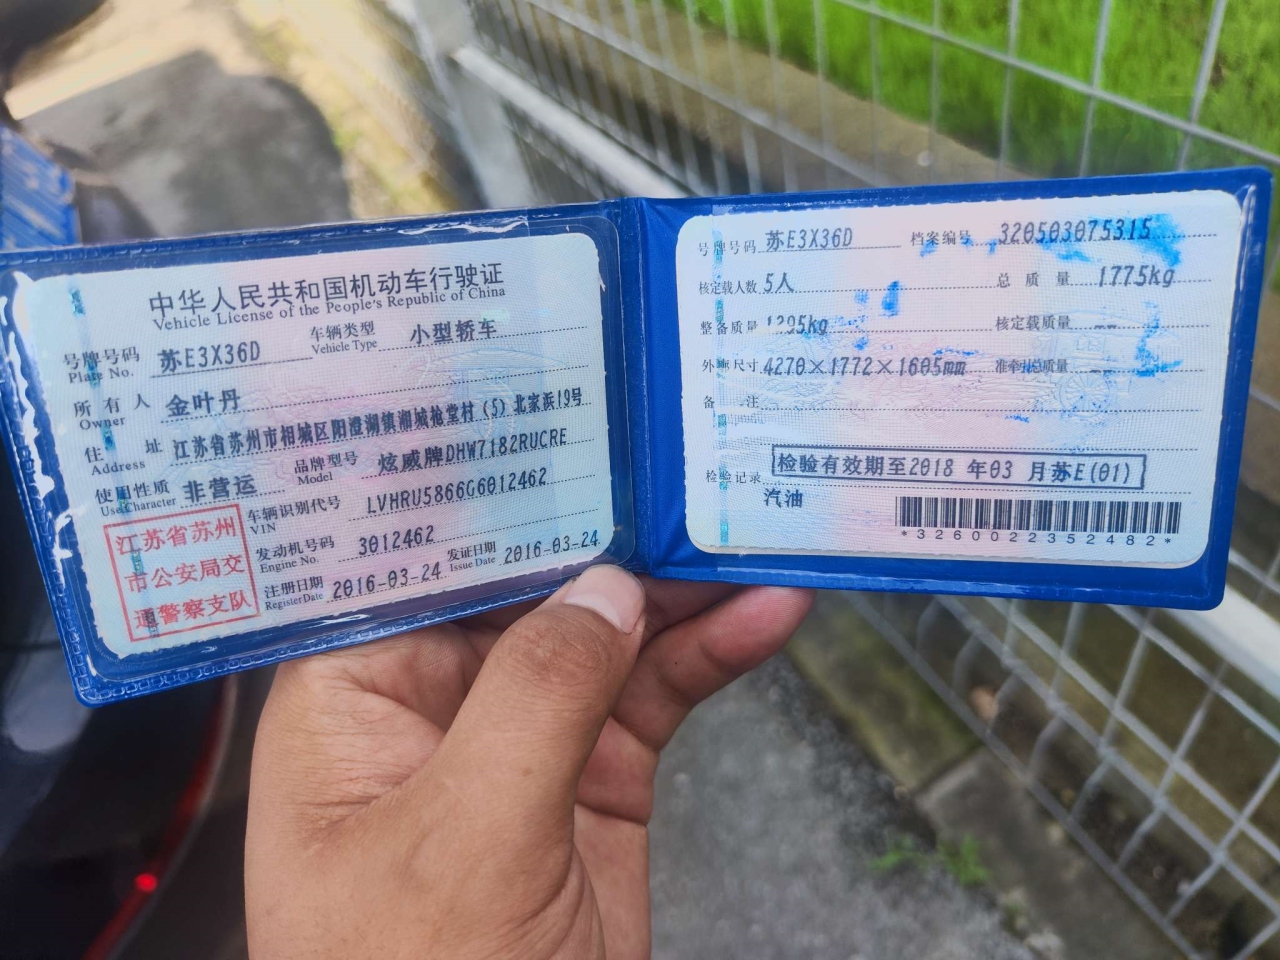 中华人民共和国机动车行驶证
Vehicle License of the People's Republic of China
号牌号码 苏E3X36D 车辆类型 小型轿车
Plate No. Vehicle Type
所有人 金叶丹
Owner
住址 江苏省苏州市相城区阳澄湖镇湘城枪堂村(5)北家浜19号
Address
使用性质 非营运 品牌型号 炫威牌DHW7182RUCRE
Use Character Model
车辆识别代号 LVHRU5866G6012462
VIN
发动机号码 3012462
Engine No.
注册日期 2016-03-24 发证日期 2016-03-24
Register Date Issue Date
江苏省苏州
市公安局交
通警察支队
号牌号码 苏E3X36D 档案编号 320503075315
核定载人数 5人 总质量 1775kg
整备质量 1295kg 核定载质量 --
外廓尺寸 4270×1772×1605mm 准牵引总质量 --
备注
检验记录 检验有效期至2018 年03 月苏E(01)
汽油
*3260022352482*